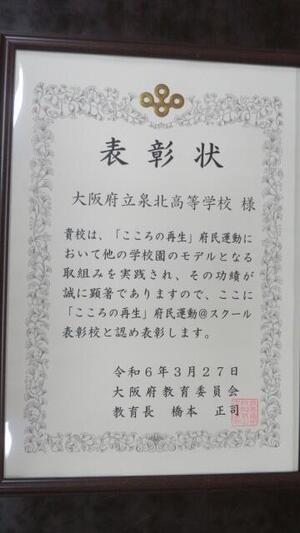 表彰状
大阪府立泉北高等学校 様
貴校は、「こころの再生」府民運動に
おいて他の学校園のモデルとなる
取組みを実践され、その功績が
誠に顕著でありますので、ここに
「こころの再生」府民運動＠スクール
表彰校と認め表彰します。
令和６年３月２７日
大阪府教育委員会
教育長 橋本 正司